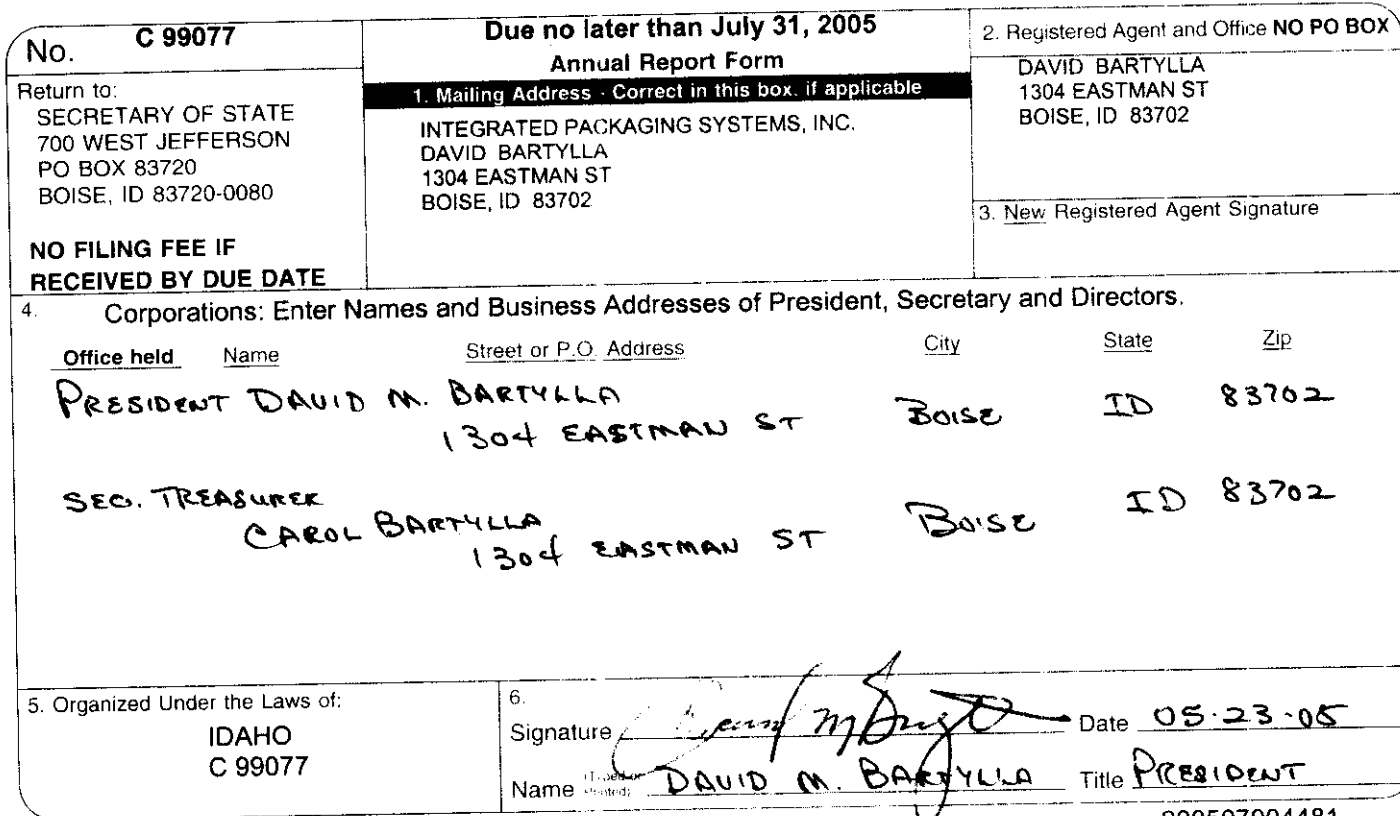 No. C 99077
Return to:
SECRETARY OF STATE
700 WEST JEFFERSON
PO BOX 83720
BOISE, ID 83720-0080
NO FILING FEE IF
RECEIVED BY DUE DATE
Due no later than July 31, 2005
Annual Report Form
1. Mailing Address - Correct in this box, if applicable
INTEGRATED PACKAGING SYSTEMS, INC.
DAVID BARTYLLA
1304 EASTMAN ST
BOISE, ID 83702
2. Registered Agent and Office NO PO BOX
DAVID BARTYLLA
1304 EASTMAN ST
BOISE, ID 83702
3. New Registered Agent Signature
4. Corporations: Enter Names and Business Addresses of President, Secretary and Directors.
Office held Name Street or P.O. Address City State Zip
PRESIDENT DAVID M. BARTYLLA
1304 EASTMAN ST BOISE ID 83702
SEC. TREASURER
CAROL BARTYLLA
1304 EASTMAN ST BOISE ID 83702
5. Organized Under the Laws of:
IDAHO
C 99077
6.
Signature Date 05·23·05
Name (Typed or Printed) DAVID M. BARTYLLA Title PRESIDENT